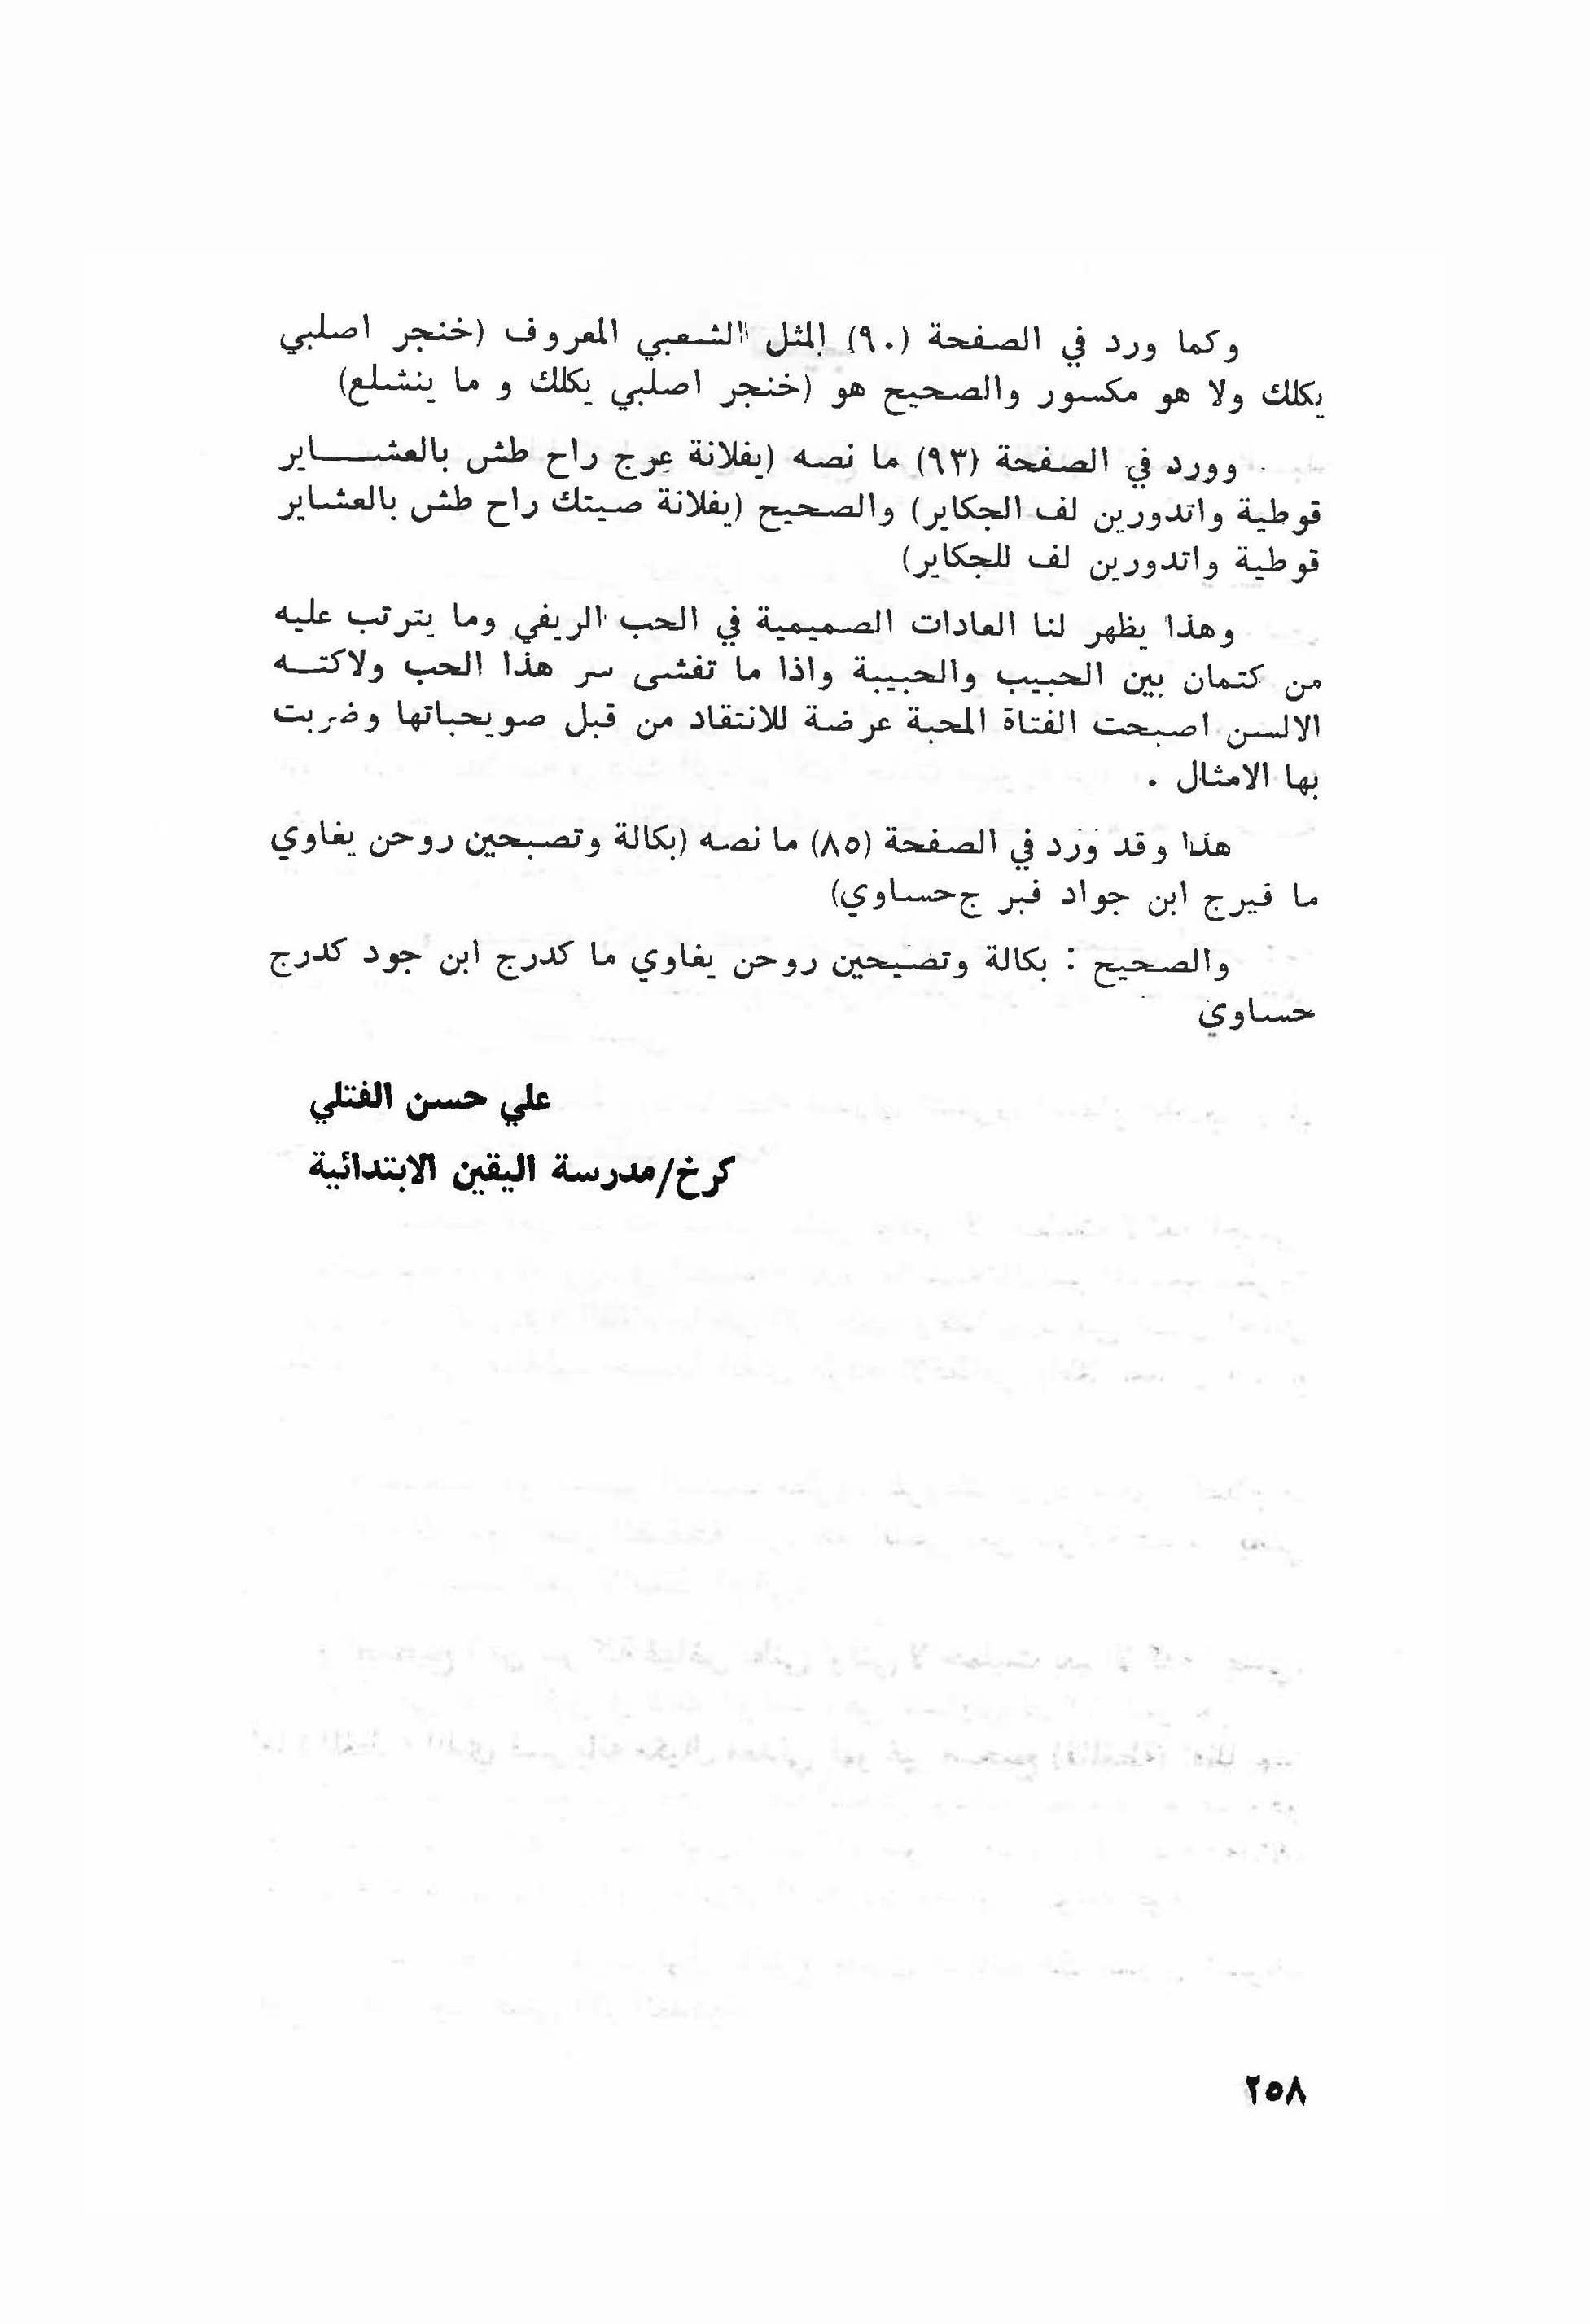 وكما ورد في الصفحة (٩٠) المثل الشعبي المعروف (خنجر اصلبي
يكلك ولا هو مكسور والصحيح هو (خنجر اصلبي يكلك و ما ينشلع)
وورد في الصفحة (٩٣) ما نصه (يفلانة عرج راح طش بالعشاير
قوطية واتدورين لف الجكاير) والصحيح (يفلانة صيتك راح طش بالعشاير
قوطية واتدورين لف للجكاير)
وهذا يظهر لنا العادات الصميمية في الحب الريفي وما يترتب عليه
من كتمان بين الحبيب والحبيبة واذا ما تفشى سر هذا الحب ولاكته
الالسن اصبحت الفتاة المحبة عرضة للانتقاد من قبل صويحباتها وضربت
بها الامثال .
هذا وقد ورد في الصفحة (٨٥) ما نصه (بكالة وتصبحين روحن يفاوي
ما فيرج ابن جواد فبر ج حساوي)
والصحيح : بكالة وتصيحين روحن يفاوي ما كدرج ابن جود كدرج
حساوي
علي حسن الفتلي
كرخ/مدرسة اليقين الابتدائية
٢٥٨